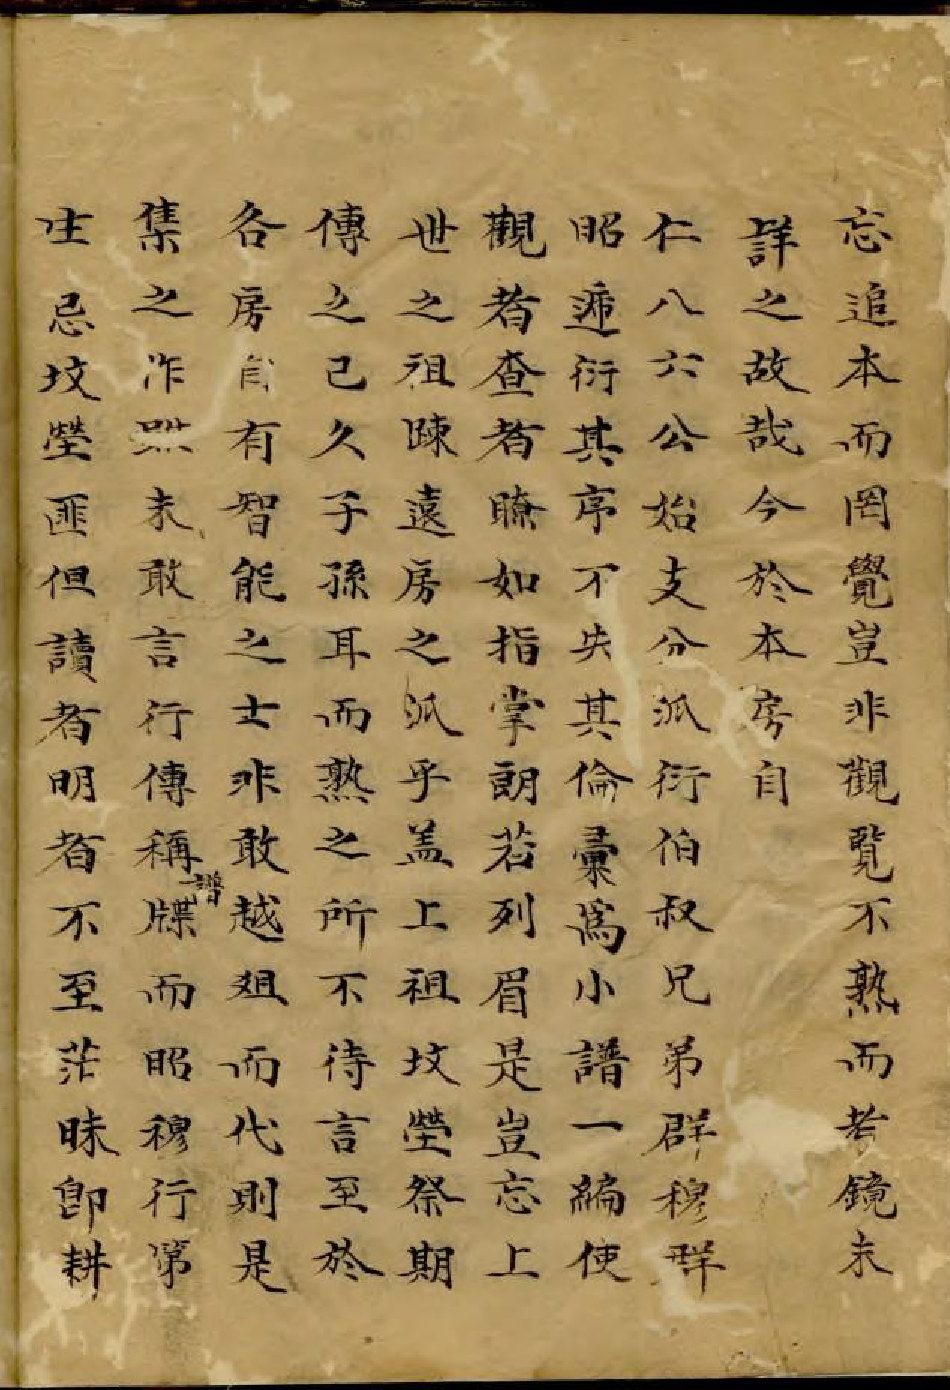 忘追本而罔覺豈非觀覽不熟而考鏡未
詳之故哉今於本房自
仁八六公始支分派衍伯叔兄弟群穆群
昭遞衍其序不失其倫彙爲小譜一編使
觀者查者瞭如指掌朗若列眉是豈忘上
世之祖踈遠房之派乎盖上祖坟塋祭期
傳之已久子孫耳而熟之所不待言至於
各房自有智能之士非敢越俎而代則是
集之作 未敢言行傳稱譜牒而昭穆行第
生忌坟塋匪但讀者明者不至茫昧卽耕